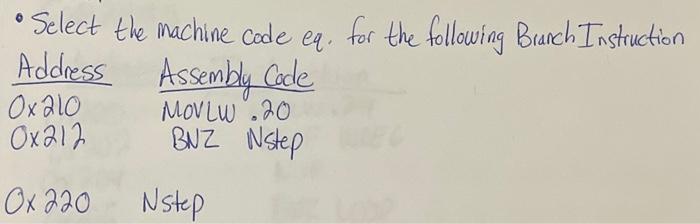 • Select the machine code eq. for the following Branch Instruction
Address Assembly Code
0x210 MOVLW .20
0x212 BNZ Nstep
0x220 Nstep